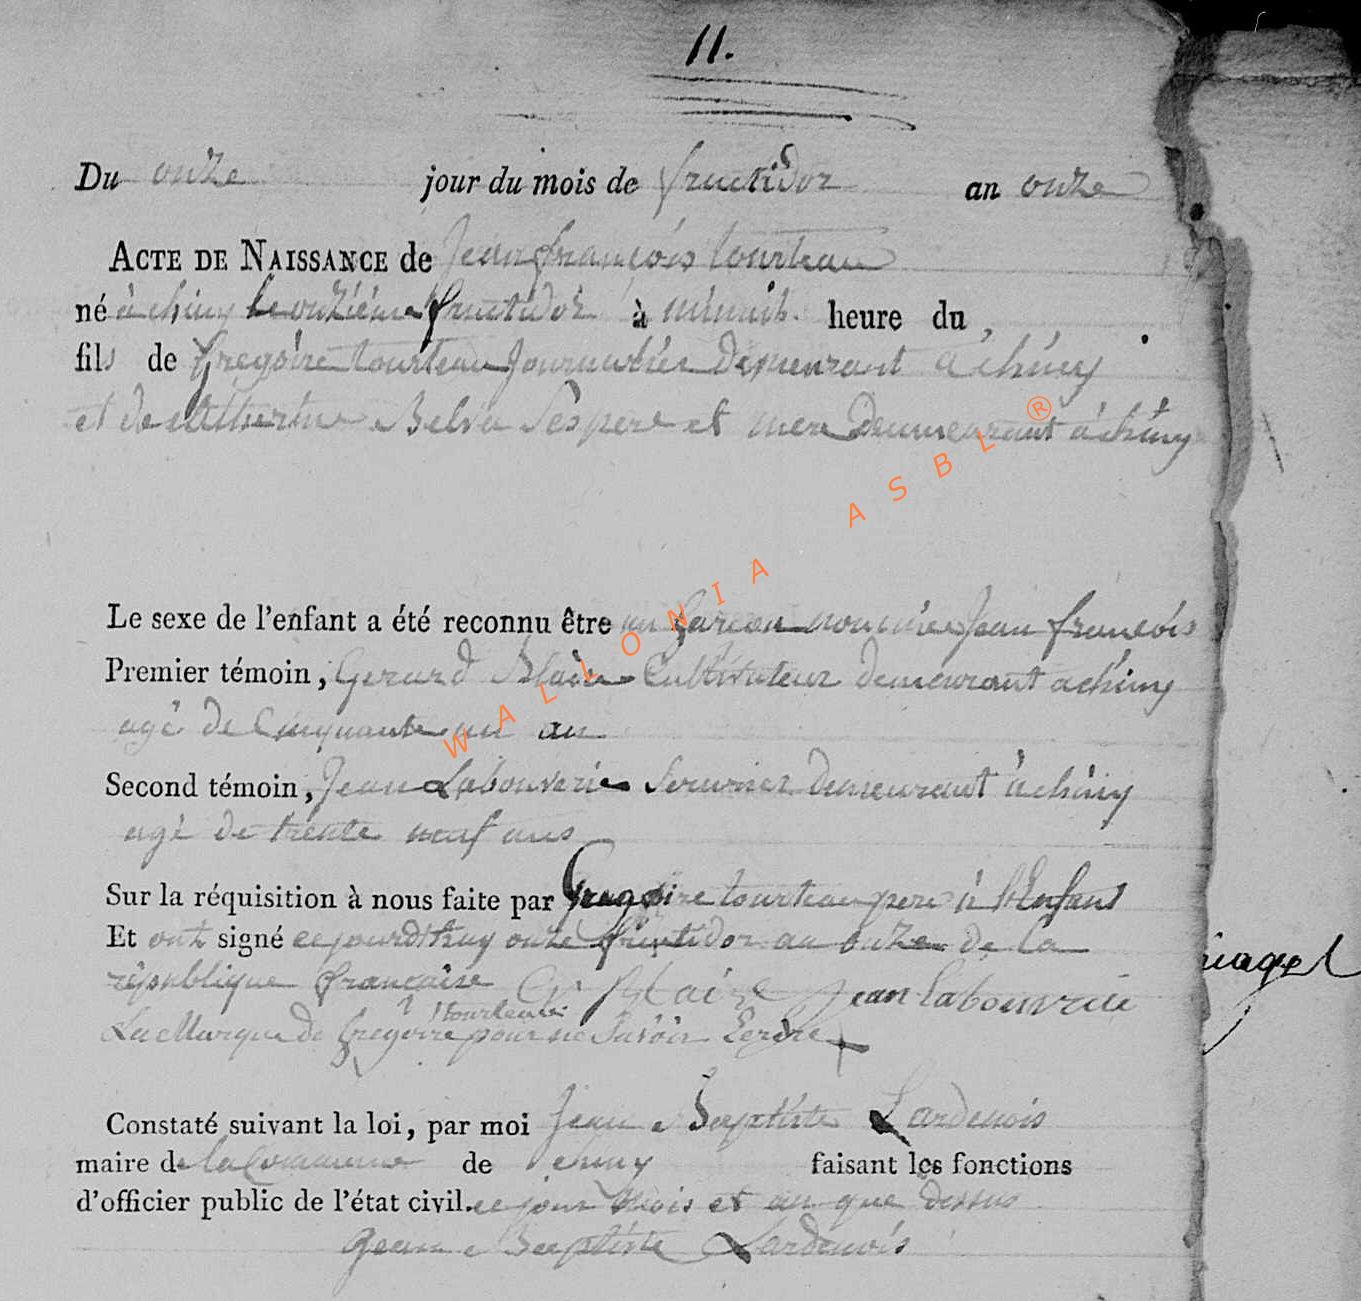 11.
Du onze jour du mois de fructidor an onze
ACTE DE NAISSANCE de Jean françois tourteau
né à chiny le onzième fructidor à minuit. heure du
fils de gregoire tourteau Journalier Demeurant a chiny
et de Belva Ses pere et mere Demmeurant à chiny
Le sexe de l'enfant a été reconnu être un garcon nommée Jean francois
Premier témoin, Gerard Blaise Cultivateur demeurant a chiny
agé de Cinquante un an
Second témoin, Jean Labouverie Serurier demeurant à chiny
agé de trente neuf ans
Sur la réquisition à nous faite par Gregoire tourteau pere à l'Enfant
Et ont signé cejourd'huy onze fructidor an onze de la
republique francaise G. Blaise Jean labouvrie
tourteau
La Marque de Gregoire pour ne Savoir Ecrire +
Constaté suivant la loi, par moi Jean Baptiste Lardenois
maire de la Commune de chiny faisant les fonctions
d'officier public de l'état civil. ce jour Mois et an que dessus
Jean Baptiste Lardenois
WALLONIA ASBL ®